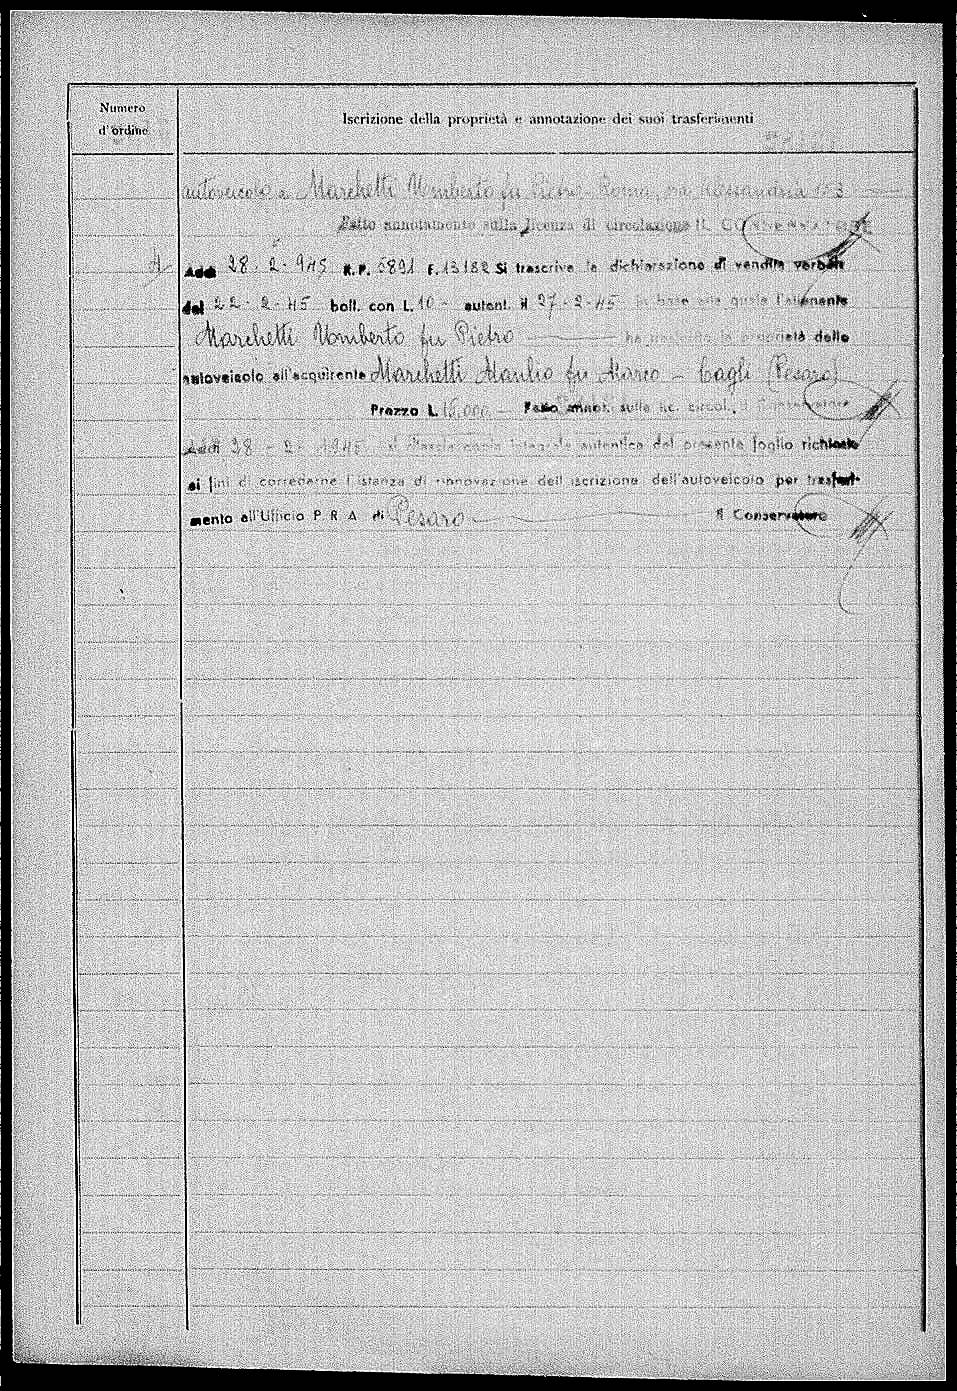 Numero
d'ordine
Iscrizione della proprietà e annotazione dei suoi trasferimenti
autoveicolo a Marchetti Umberto fu Pietro Roma, via Alessandria 153
Fatto annotamento sulla licenza di circolazione IL CONSERVATORE
Addì 28-2-945 R.P. 5891 F. 13182 Si trascrive la dichiarazione di vendita verbale
del 22-2-45 boll. con L. 10 - autent. il 27-2-45 in base alla quale l'alienante
Marchetti Umberto fu Pietro ha trasferito la proprietà dello
autoveicolo all'acquirente Marchetti Manlio fu Marco - Cagli (Pesaro)
Prezzo L. 15.000 - Fatto annot. sulla lic. circol. Il Conservatore
Addì 28-2-1945 si rilascia copia integrale autentica del presente foglio richiesto
ai fini di corredarne l'istanza di rinnovazione dell'iscrizione dell'autoveicolo per trasferi-
mento all'Ufficio P R A di Pesaro Il Conservatore